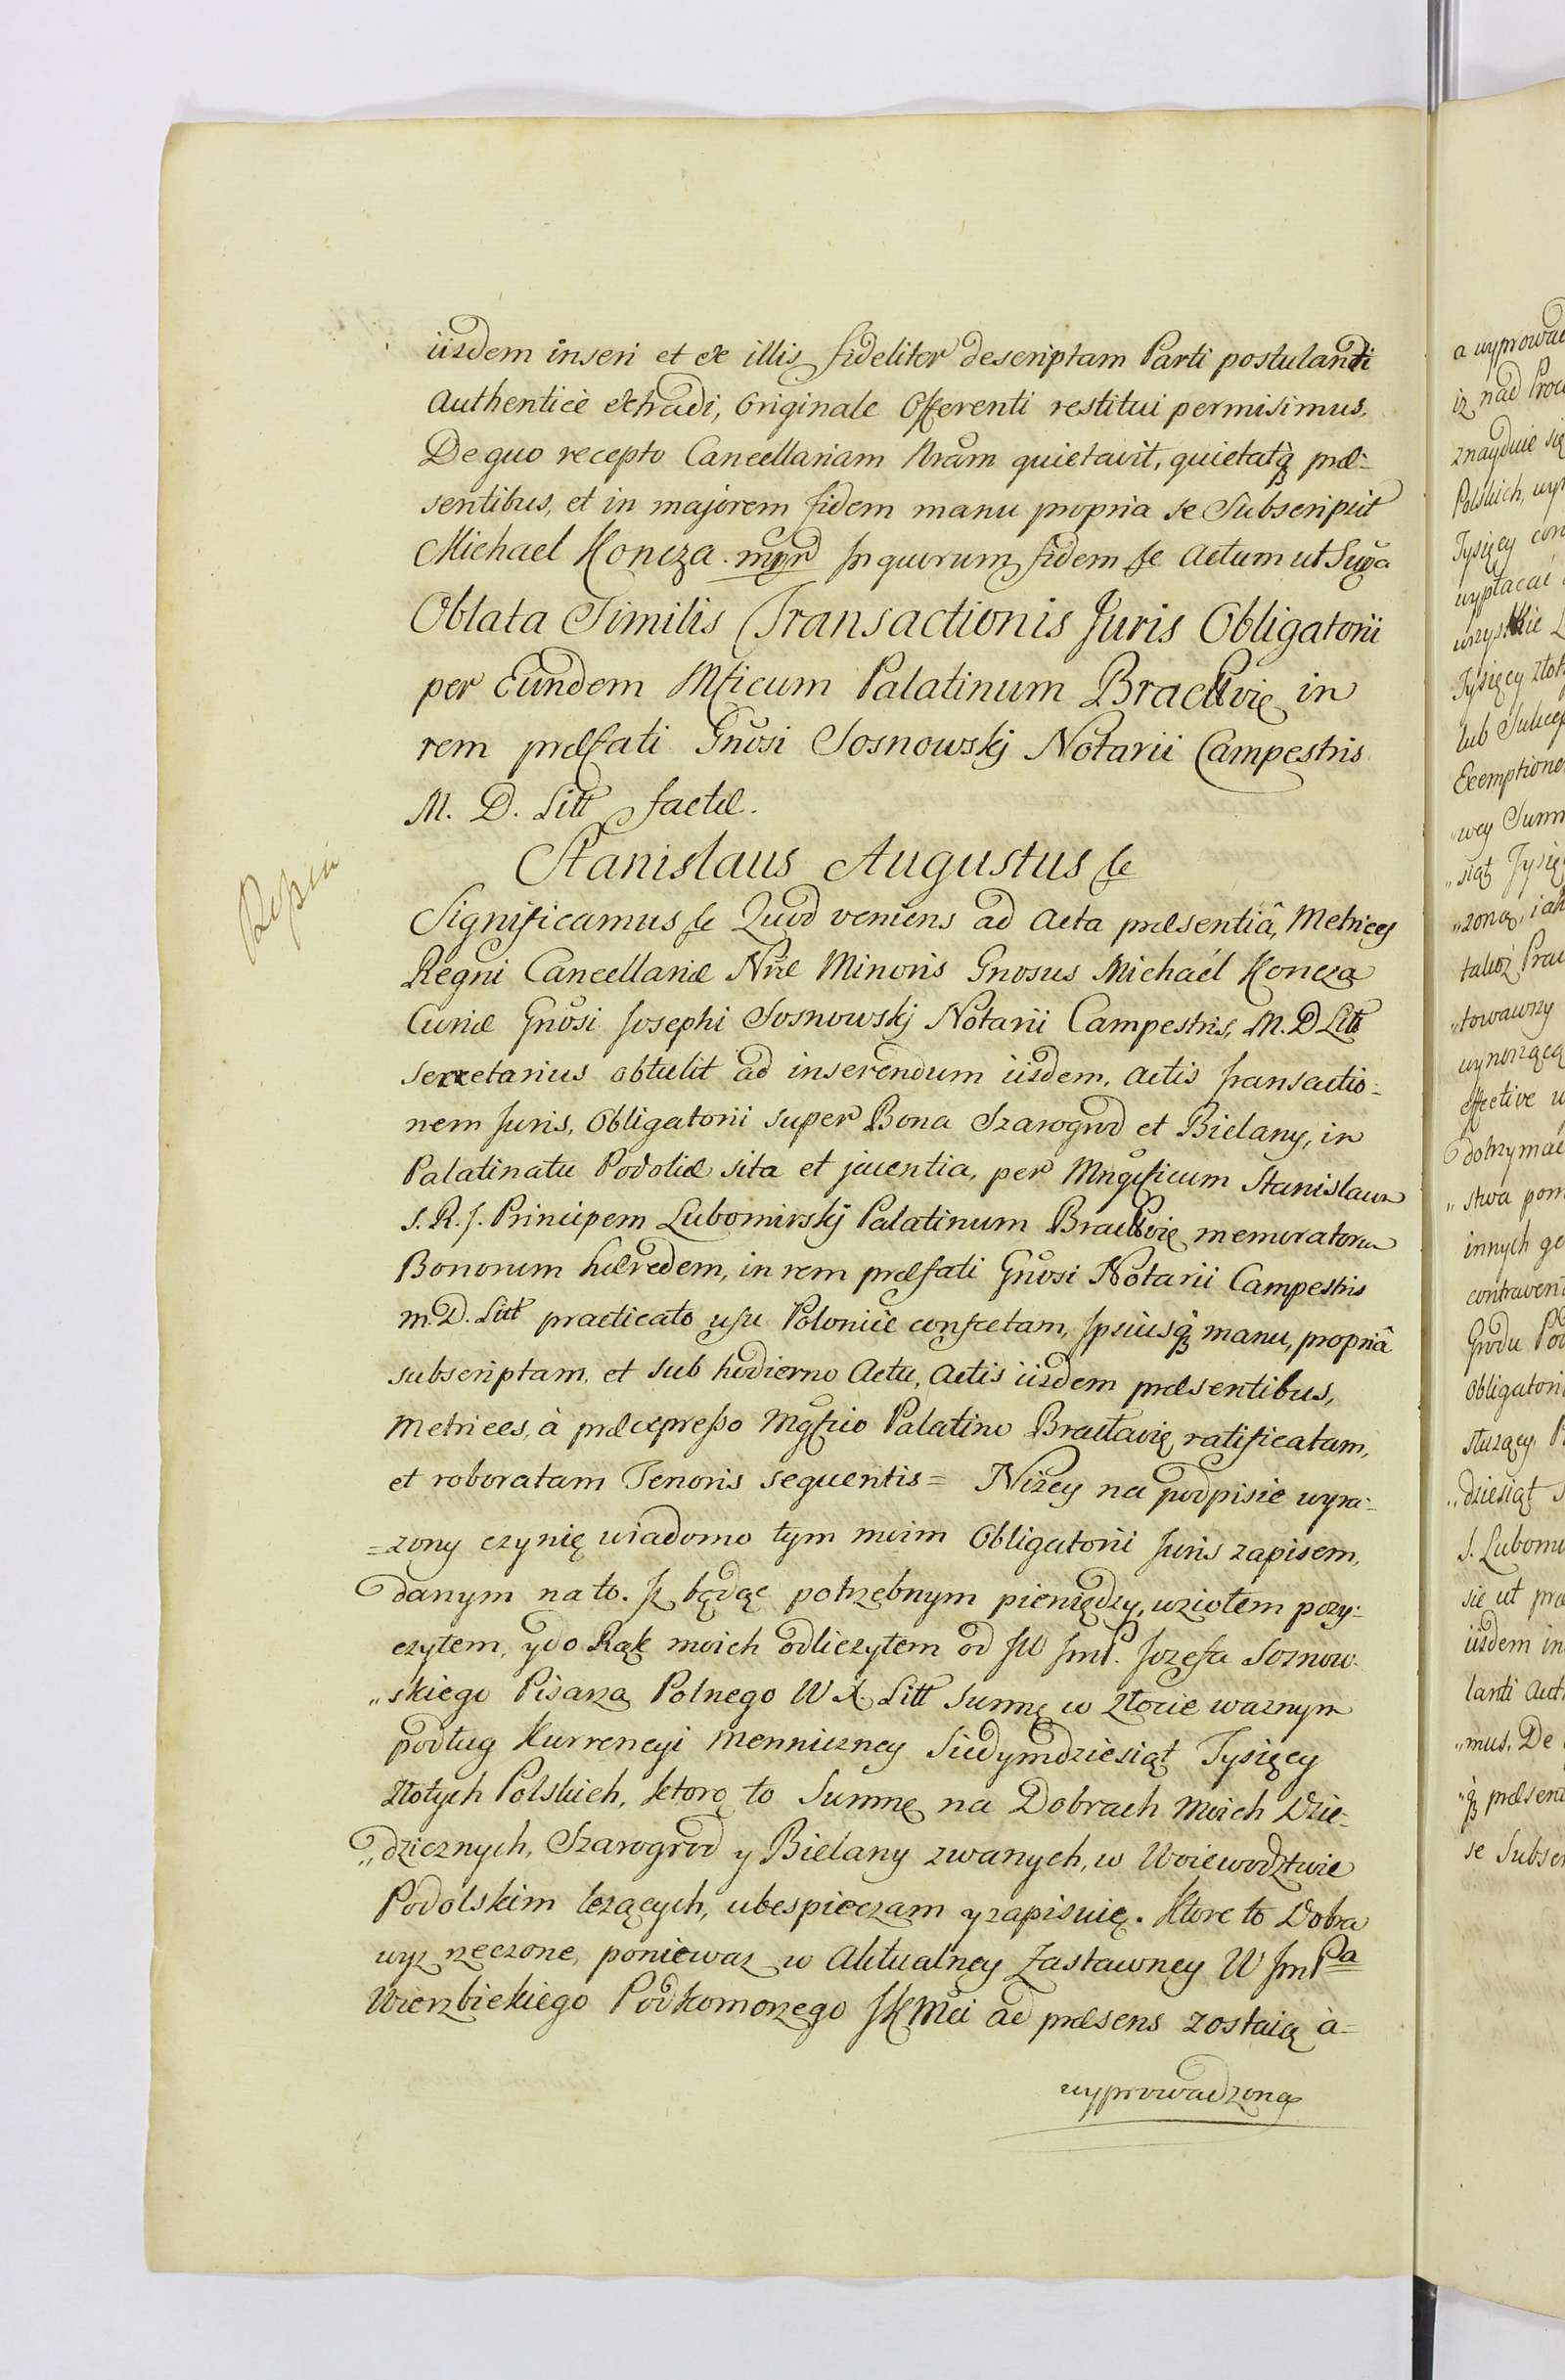 iisdem inseri et ex illis fideliter descriptam Parti postulandi
Authenticè extradi, Originale Offerenti restitui permisimus.
De quo recepto Cancellariam Nram quietavit, quietatq3 præ=
sentibus, et in majorem fidem manu propria se Subscripsit
Michael Koncza mpp In quorum fidem &c Actum ut Supra
Oblata Similis Transactionis Juris Obligatorii
per Eundem Mficum Palatinum Braclavię in
rem præfati Gnosi Sosnowskj Notarii Campestris
M. D. Litt factæ.
Stanislaus Augustus &c
Significamus &c Quod veniens ad Acta præsentiâ, Metrices
Regni Cancellariæ Nræ Minoris Gnosus Michaél Koncza
Curiæ Gnosi Josephi Sosnowskj Notarii Campestris, M. D Litt
secretarius obtulit ad inserendum iisdem, Actis transactio=
nem Juris, Obligatorii super Bona Szarogrod et Bielany, in
Palatinatu Podoliæ sita et jacentia, per Mngficum Stanislaum
S. R. J. Principem Lubomirskj Palatinum Braclavię memoratorum
Bonorum hæredem, in rem præfati Gnosi Notarii Campestris
m. D. Litt practicato usu Polonicè confectam, Ipsiusq3 manu, propriâ
subscriptam, et sub hodierno Actu, Actis iisdem præsentibus,
Metrices, à præexpresso Mgfico Palatino Braclavię ratificatam,
et roboratam Tenoris sequentis= Niżey na podpisie wyra=
=zony czynię wiadomo tym moim Obligatorii Juris zapisem,
danym na to. Iż będąc potrzebnym pieniędzy, wziołem pozy=
czyłem, y do Rąk moich odliczyłem od JW JmP. Jozefa Sosnow
„skiego Pisarza Polnego W X. Litt Summę w złocie waznym
podług Kurrencyi menniczney Siedymdziesiąt Tysięcy
złotych Polskich, ktorą to Summę na Dobrach moich Dzie=
„dzicznych, Szarogrod y Bielany zwanych, w Woiewodztwie
Podolskim lezących, ubespieczam y zapisuię. Ktore to Dobra
wyz rzeczone, poniewaz w Aktualney Zastawney W JmPa
Wierzbickiego Podkomorzego JKMci ad præsens zostaią à=
wyprowadzoną
a wyprowad
iz nad Proc
znayduie się
Polskich, wy
Tysięcy con
wypłacać
wszystkie
Tysięcy złot
lub Sukcep
Exemptione
wey Summ
„siąt Tysię
„zoną, iak
takoż Praw
„towawszy
wynoszącą
effective
dotrzymać
„stwa pom
innych ge
contraven
Grodu Pod
Obligatori
służący. P
„dziesiąt
S. Lubomi
sie ut præ
iisdem in
lanti Auth
„mus. De
„q3 præsen
se Subscr